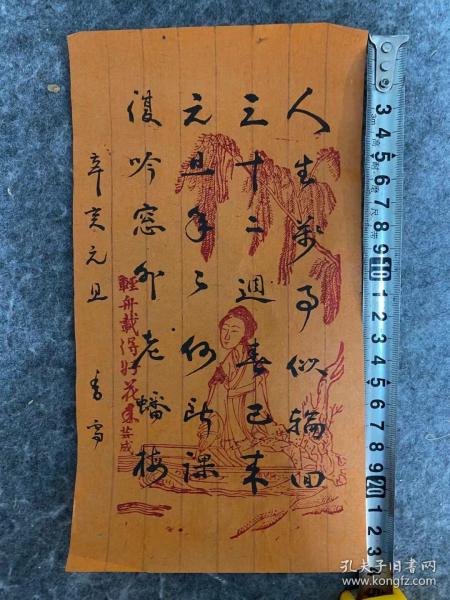 人生萬事似輪回
三十二週春已來
元旦年々何所課
復吟窓外老蟠梅
辛亥元旦
輕舟載得好花來
芸成
3m
3 4 5 6 7 8 9 10 1 2 3 4 5 6 7 8 9 20 1 2 3
孔夫子旧书网
www.kongfz.com